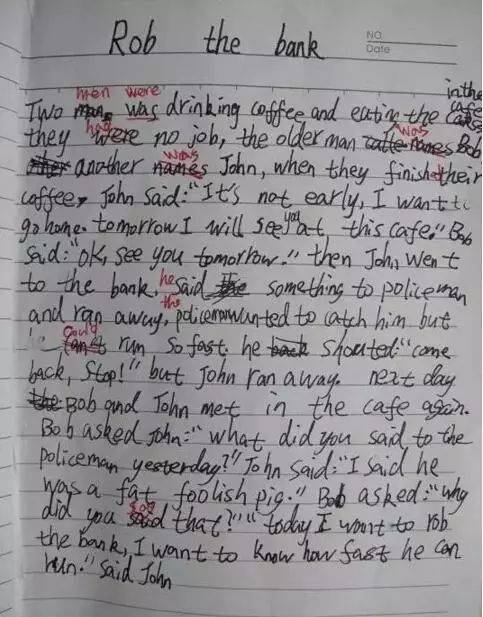 Rob the bank
NO.
Date
men were in the cafe
Two was drinking coffee and eating the
had was
they were no job, the older man names Bob
was
another names John, when they finished their
coffee, John said:"It's not early, I want to
you
go home. tomorrow I will see at this cafe." Bob
said:"ok, see you tomorrow." then John went
he
to the bank, said something to policeman
the
and ran away, policeman wanted to catch him but
could
run so fast. he back shouted:"come
back, stop!" but John ran away. next day
the Bob and John met in the cafe again.
Bob asked John:"what did you said to the
policeman yesterday?" John said:"I said he
was a fat foolish pig." Bob asked:"why
say
did you said that?" "today I want to rob
the bank, I want to know how fast he can
run." said John